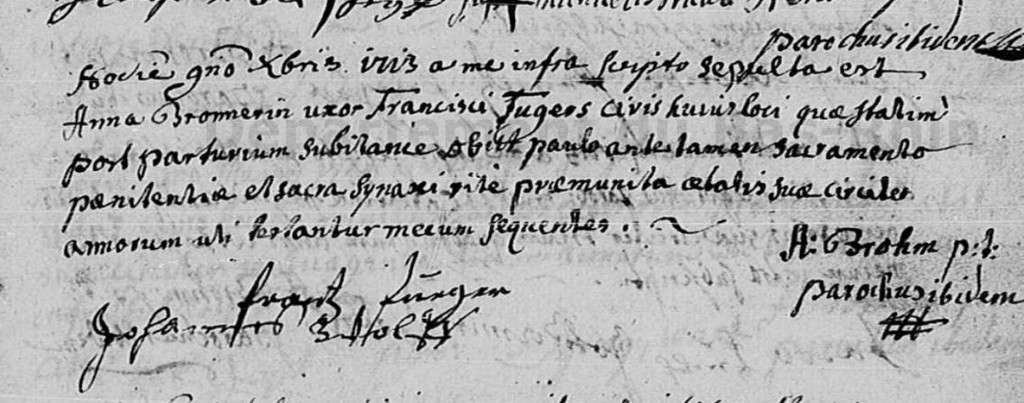 parochus ibidem
Hodie 9no Xbris 1713 a me infra scripto sepulta est
Anna Bronnerin uxor Francisci Jugers civis huius loci quæ statim
post parturium subitanee obiit paulo ante tamen sacramento
pænitentiæ et sacra synaxi rite præmunita ætatis suæ circiter
annorum uti testantur mecum sequentes.
A: Brohm p:t:
parochus ibidem
frantz Jünger
Johannes Wolff